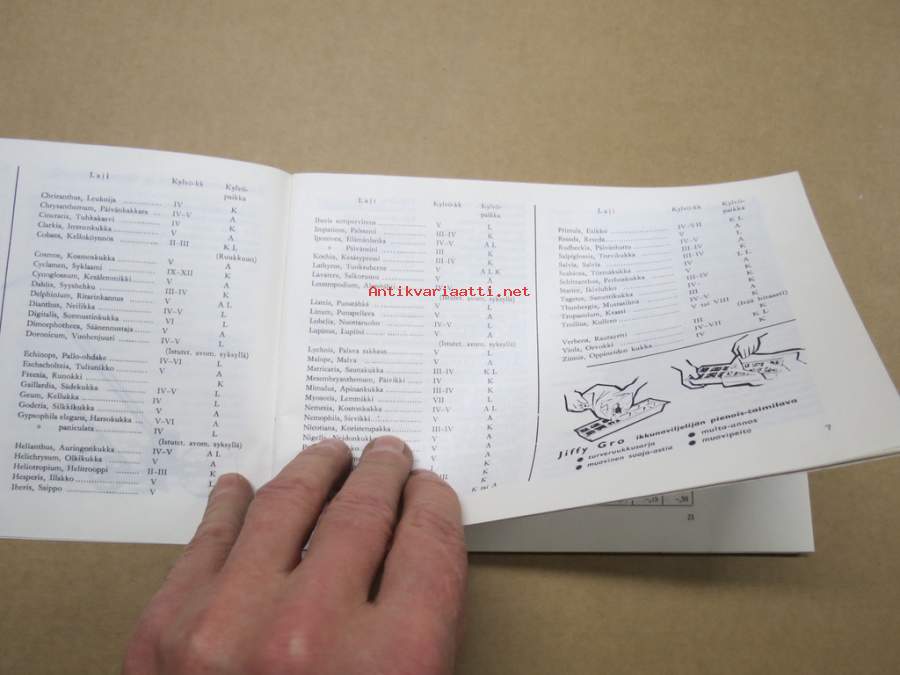 Laji Kylvö-kk Kylvö-
paikka
Cheiranthus, Leukoija IV K
Chrysanthemum, Päivänkakkara IV–V A
Cineraria, Tuhkakasvi IV K
Clarkia, A
Cobaea, Kelloköynnös II–III K L
(Ruukkuun)
Cosmos, Kosmoskukka V A
Cyclamen, Syklaami IX–XII K
Cynoglossum, Kesälemmikki V A
Dahlia, Syyshehku III–IV K
Delphinium, Ritarinkannus V A L
Dianthus, Neilikka IV–V L
Digitalis, Sormustinkukka VI L
Dimorphotheca, Säänennustaja V A
Doronicum, Vuohenjuuri IV–V L
(Istutet. avom. syksyllä)
Echinops, Pallo-ohdake IV–VI L
Eschscholtzia, Tuliunikko V A
Freesia, Runokki K
Gaillardia, Sädekukka IV–V L
Geum, Kellukka IV L
Godetia, Silkkikukka V A
Gypsophila elegans, Harsokukka V–VI A
» paniculata IV L
(Istutet. avom. syksyllä)
Helianthus, Auringonkukka IV–V A L
Helichrysum, Olkikukka V A
Heliotropium, Heliotrooppi II–III K
Hesperis, Illakko V L
Iberis, Saippo V
Laji Kylvö-kk Kylvö-
paikka
Iberis sempervirens V L
Impatiens, Palsami III–IV K
Ipomoea, Elämänlanka IV–V A L
» Päivänsini III K
Kochia, Kesäsypressi III–IV K
Lathyrus, Tuoksuherne V A L K
Lavatera, Salkoruusu V A
Leontopodium,
(Istutet. avom. syksyllä)
Liatris, Punatähkä V L
Linum, Punapellava V A
Lobelia, IV–V L
Lupinus, Lupiini V A
(Istutet. avom. syksyllä)
Lychnis, Palava rakkaus V L
Malope, Malva V A
Matricaria, Saunakukka III–IV K L
Mesembryanthemum, Päivikki IV K
Mimulus, Apinankukka III–IV K
Myosotis, Lemmikki VII L
Nemesia, Kostoskukka IV–V A L
Nemophila, Sievikki V A
Nicotiana, Koristetupakka III–IV K
Nigella, Neidonkukka V A
A
A
K
K
K
K tai A
Laji Kylvö-kk Kylvö-
paikka
Primula, Esikko IV–VII K L
Reseda, Reseda V A
Rudbeckia, Päivänhattu IV–V L
Salpiglossis, Torvikukka III–IV K
Salvia, Salvia III–IV L L
Scabiosa, Törmäkukka IV A
Schizanthus, Perhoskukka V K
Statice, Ikiviuhko III–IV A
Tagetes, Samettikukka IV A
Thunbergia, Mustasilmä III K
Tropaeolum, Krassi IV–V A
Trollius, Kullero V tai VIII (heti kitaasti)
K
Verbena, Rautayrtti III K L
Viola, Orvokki IV–VII K
Zinnia, Oppineiden kukka IV
Jiffy Gro ikkunaviljelijän pienois-taimilava
● turveruukkusarja ● multa-annos
● muovinen suoja-astia ● muovipeite
7
23
Antikvariaatti.net